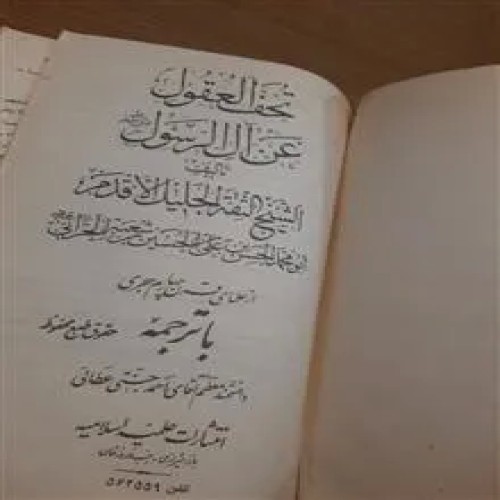 تحف العقول
عن آل الرسول
تألیف
الشیخ الثقة الجلیل الأقدم
ابو محمد الحسن بن علی بن الحسین بن شعبة الحرانی
از علمای قرن چهارم هجری
با ترجمه
حقوق طبع محفوظ
دانشمند معظم آقای احمد جنتی عطائی
انتشارات علمیه اسلامیه
بازار شیرازی
تلفن ۵۶۲۵۵۹